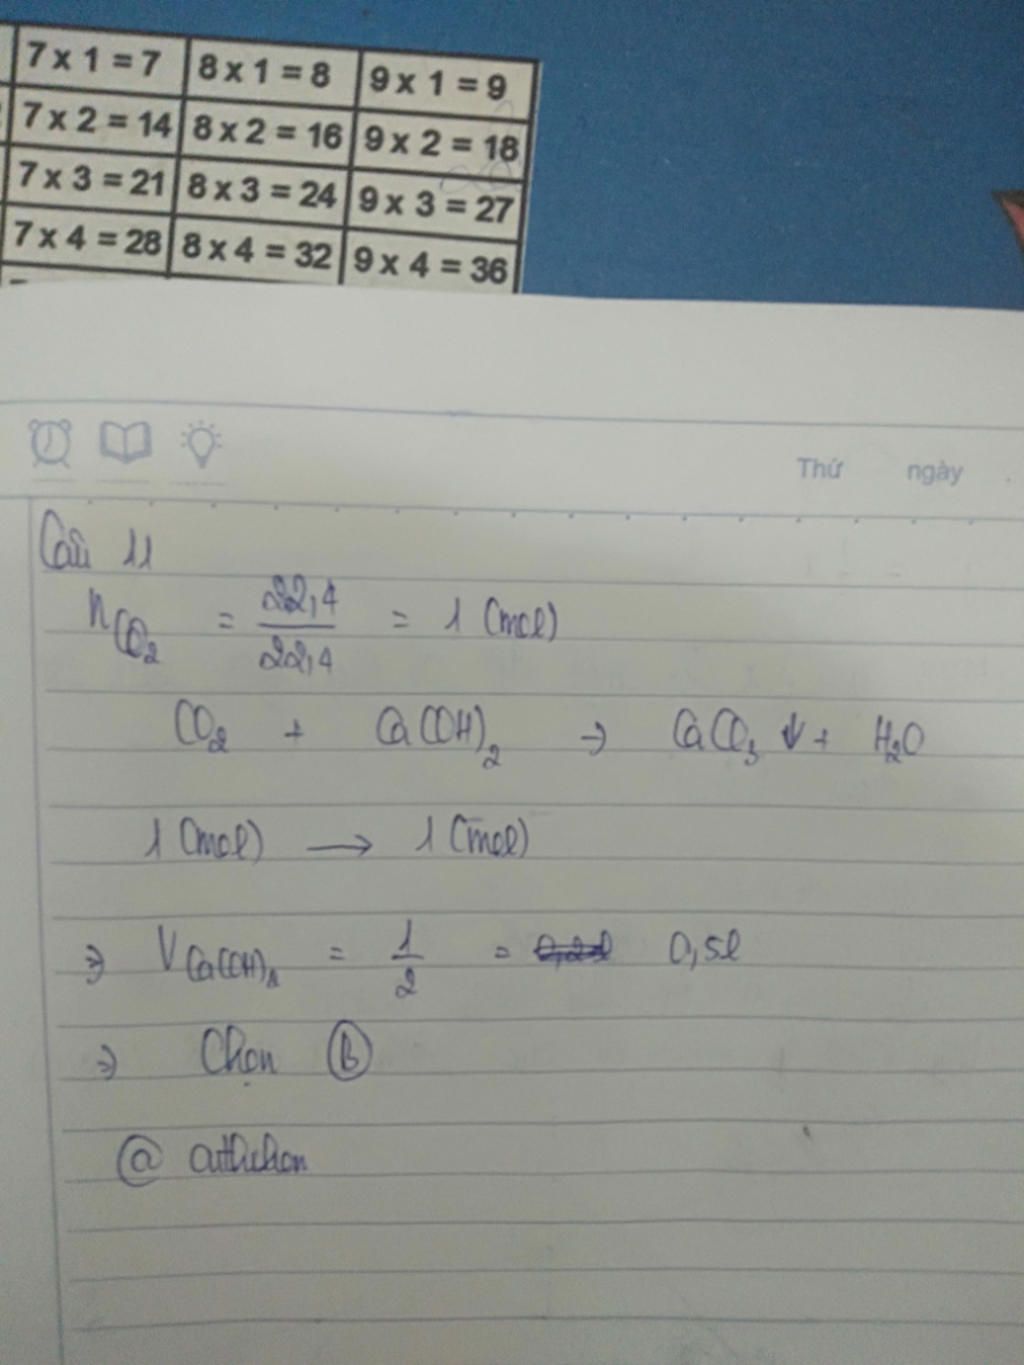 7 x 1 = 7 8 x 1 = 8 9 x 1 = 9
7 x 2 = 14 8 x 2 = 16 9 x 2 = 18
7 x 3 = 21 8 x 3 = 24 9 x 3 = 27
7 x 4 = 28 8 x 4 = 32 9 x 4 = 36
Thứ ngày
Câu 11
nCO₂ = 22,4/22,4 = 1 (mol)
CO₂ + Ca(OH)₂ → CaCO₃ ↓ + H₂O
1 (mol) → 1 (mol)
⇒ VCa(OH)₂ = 1/2 = 0,5l
⇒ Chọn B